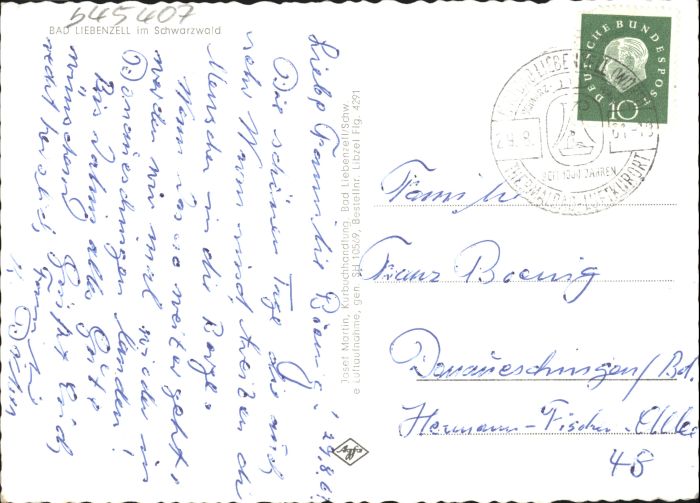 545407
BAD LIEBENZELL im Schwarzwald
Liebe Familie Boenig! 29.8.61
Die schönen Tage die auch
sehr Warm sind treiben die
Menschen in die Berge.
Wenn es so weiter geht,
werden wir mal wieder in
Donaueschingen landen!
Bis dahin alles Gute
wünschend Grüßt Euch
recht herzlich Fam.
Josef Martin, Kurbuchhandlung, Bad Liebenzell/Schw.
e Luftaufnahme, gen. SH 10549, Bestellnr. Libzel Flg. 4291
Agfa
DEUTSCHE BUNDESPOST
10
LIEBENZELL
29.8.61-18
SEIT 1000 JAHREN
THERMALBAD LUFTKURORT
Familie
Franz Boenig
Donaueschingen/Bd.
Hermann-Fischer-Allee
48